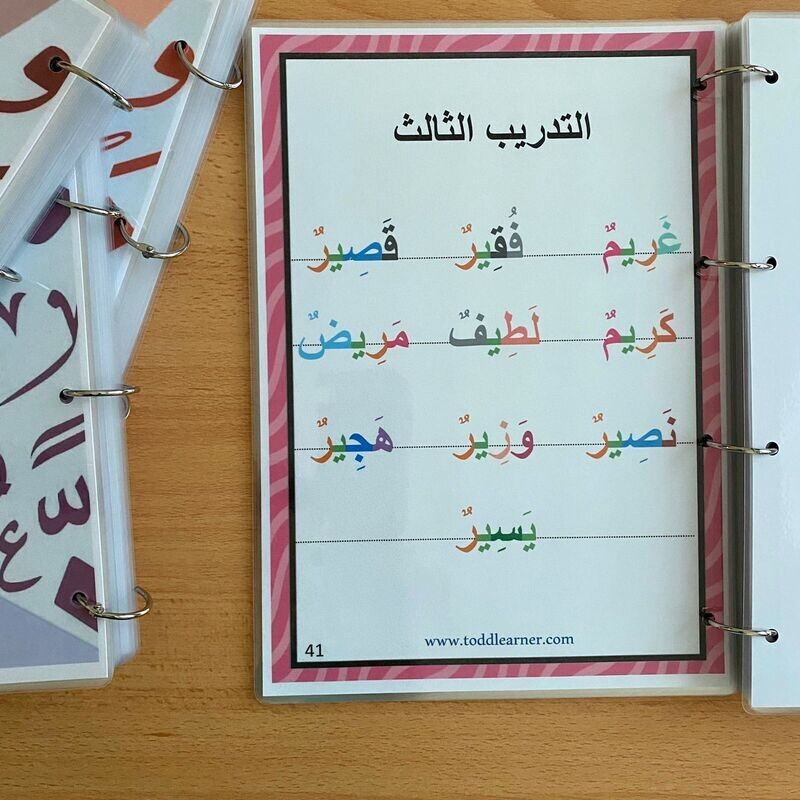 التدريب الثالث
غَرِيمٌ فُقِيرٌ قَصِيرٌ
كَرِيمٌ لَطِيفٌ مَرِيضٌ
نَصِيرٌ وَزِيرٌ هَجِيرٌ
يَسِيرٌ
www.toddlearner.com
41